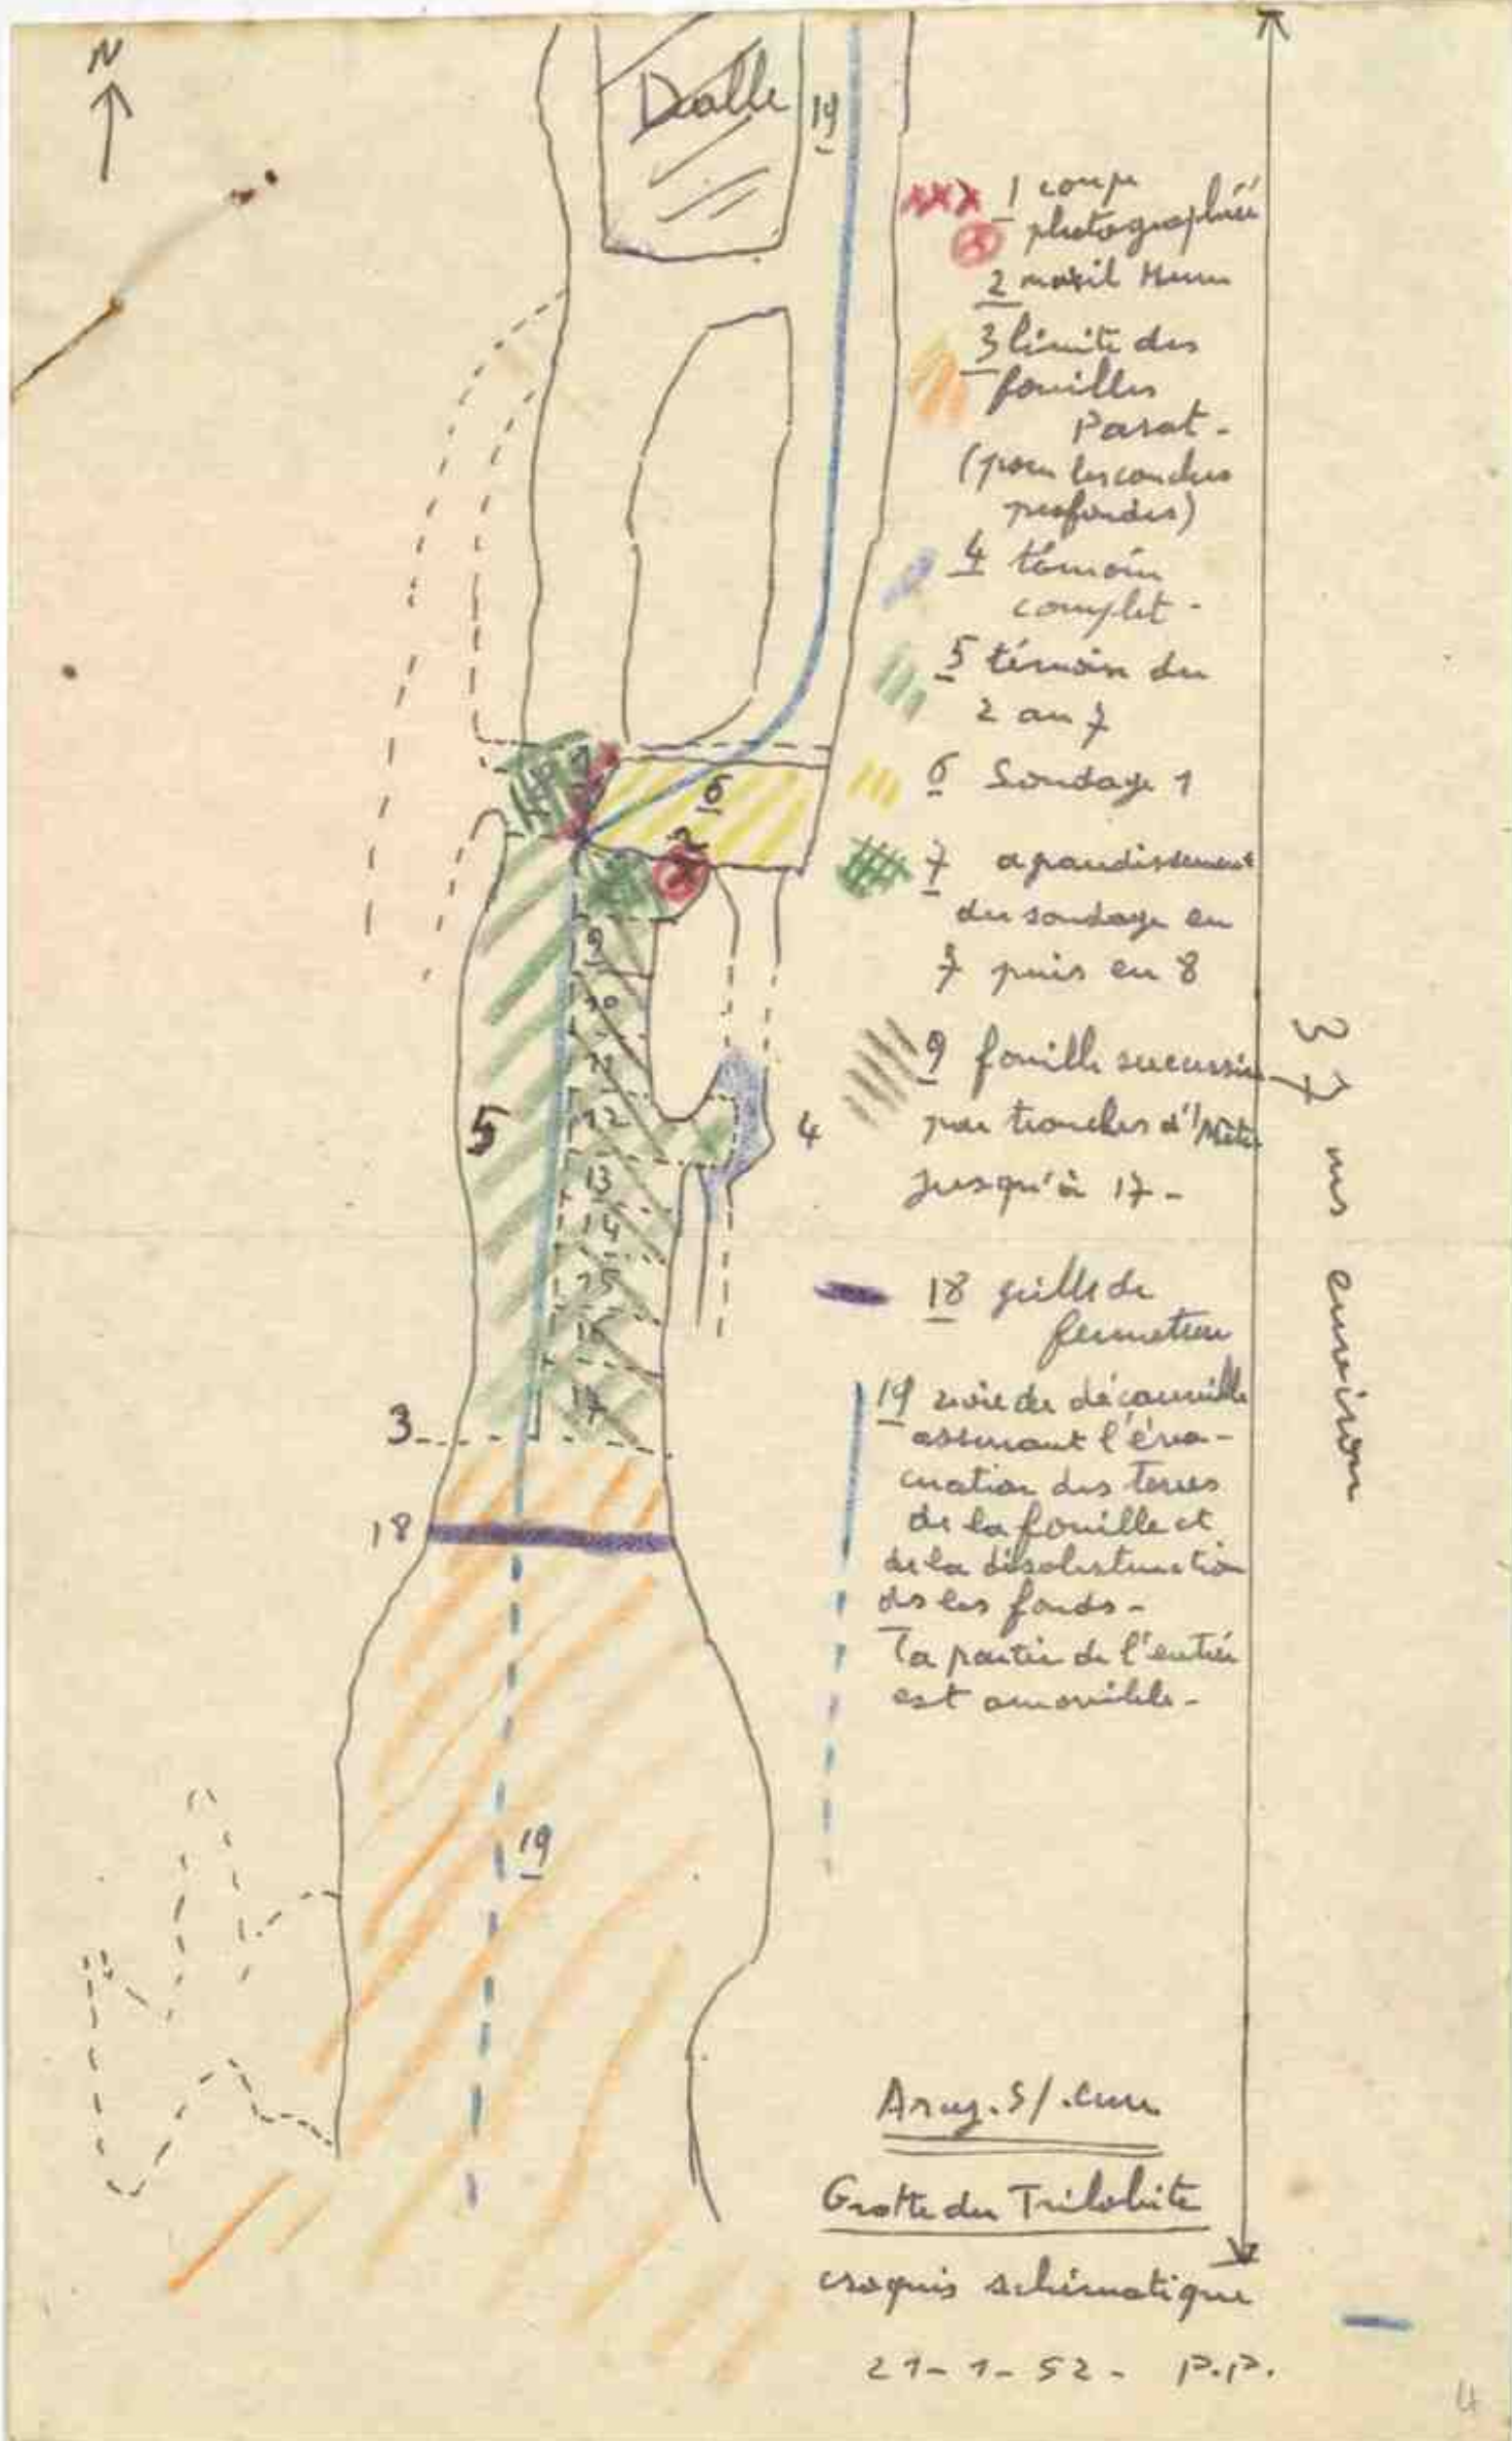 N
Dalle
19
1 coupe
photographiée
2
3 limite des
fouilles
Parat -
(pour les couches
profondes)
4 témoin
complet -
5 témoin du
2 au 7
6 Sondage 1
7 agrandissement
du sondage en
7 puis en 8
9 fouille successive
par tranches d'1 Mètre
jusqu'à 17 -
18 grille de
fermeture
19 voie de décauville
assurant l'éva-
cuation des terres
de la fouille et
de la désobstruction
ds les fonds -
La partie de l'entrée
est amovible -
37 ms environ
7
6
2
9
10
11
12
13
14
15
16
17
5
4
3
18
19
Arcy. S/. Cure
Grotte du Trilobite
croquis schématique
21-1-52 - P.P.
4